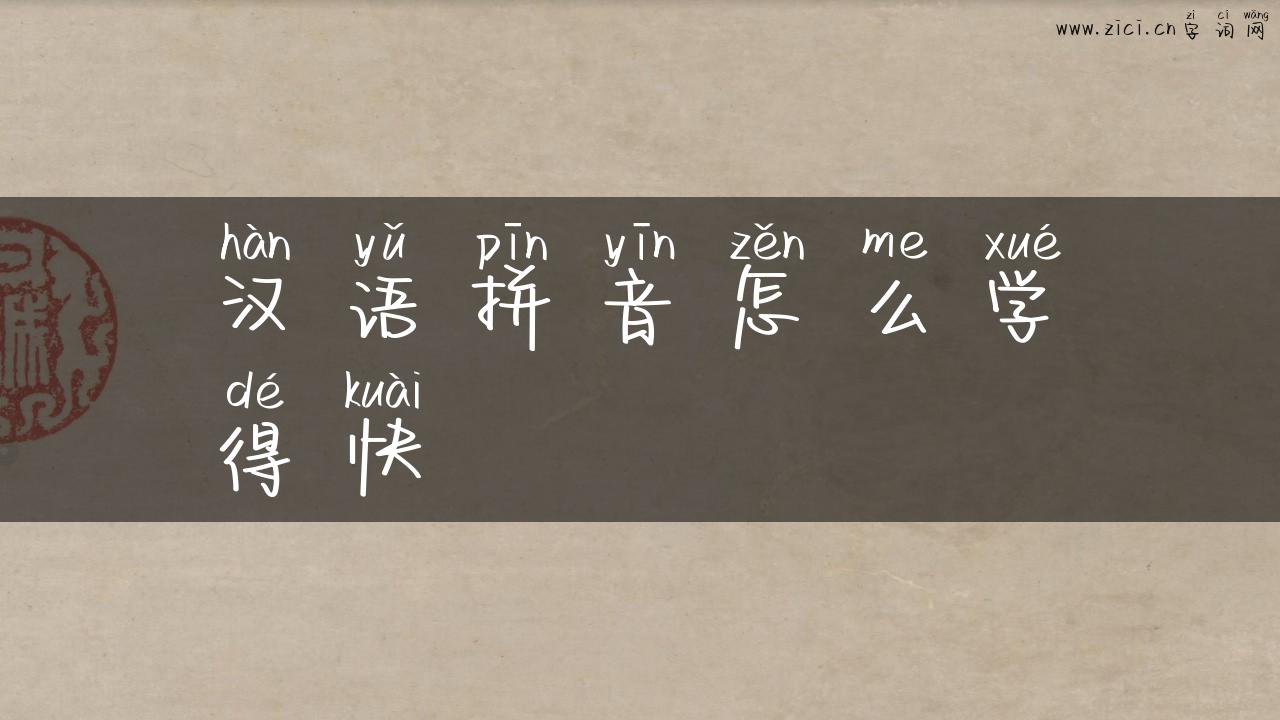 zì cí wǎng
www.zici.cn字词网
hàn yǔ pīn yīn zěn me xué
汉语拼音怎么学
dé kuài
得快